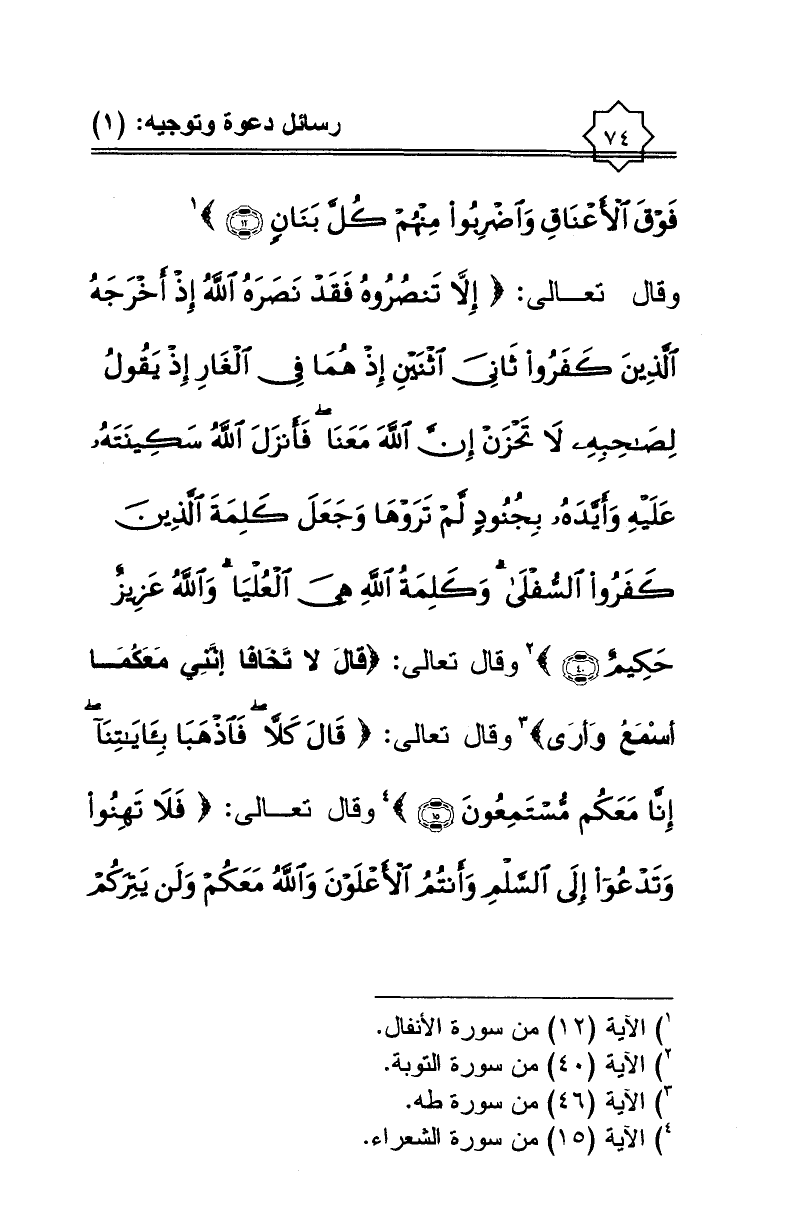 ٧٤ رسائل دعوة وتوجيه: (١)
فَوْقَ ٱلْأَعْنَاقِ وَٱضْرِبُوا۟ مِنْهُمْ كُلَّ بَنَانٍ ۝١٢ ﴾¹
وقال تعـــالى: ﴿ إِلَّا تَنصُرُوهُ فَقَدْ نَصَرَهُ ٱللَّهُ إِذْ أَخْرَجَهُ
ٱلَّذِينَ كَفَرُوا۟ ثَانِىَ ٱثْنَيْنِ إِذْ هُمَا فِى ٱلْغَارِ إِذْ يَقُولُ
لِصَـٰحِبِهِۦ لَا تَحْزَنْ إِنَّ ٱللَّهَ مَعَنَا ۖ فَأَنزَلَ ٱللَّهُ سَكِينَتَهُۥ
عَلَيْهِ وَأَيَّدَهُۥ بِجُنُودٍ لَّمْ تَرَوْهَا وَجَعَلَ كَلِمَةَ ٱلَّذِينَ
كَفَرُوا۟ ٱلسُّفْلَىٰ ۗ وَكَلِمَةُ ٱللَّهِ هِىَ ٱلْعُلْيَا ۗ وَٱللَّهُ عَزِيزٌ
حَكِيمٌ ۝٤٠ ﴾² وقال تعالى: ﴿قَالَ لا تَخَافَا إِنَّنِي مَعَكُمَـــا
أَسْمَعُ وَأَرَى﴾³ وقال تعالى: ﴿ قَالَ كَلَّا ۖ فَٱذْهَبَا بِـَٔايَـٰتِنَآ ۖ
إِنَّا مَعَكُم مُّسْتَمِعُونَ ۝١٥ ﴾⁴ وقال تعـــالى: ﴿ فَلَا تَهِنُوا۟
وَتَدْعُوٓا۟ إِلَى ٱلسَّلْمِ وَأَنتُمُ ٱلْأَعْلَوْنَ وَٱللَّهُ مَعَكُمْ وَلَن يَتِرَكُمْ
١) الآية (١٢) من سورة الأنفال.
٢) الآية (٤٠) من سورة التوبة.
٣) الآية (٤٦) من سورة طه.
٤) الآية (١٥) من سورة الشعراء.